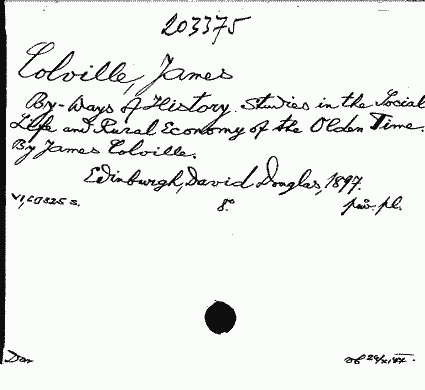 203375
Colville, James
By-Ways of History. Studies in the Social
Life and Rural Economy of the Olden Time.
By James Colville.
Edinburgh, David Douglas, 1897.
8°
pl.